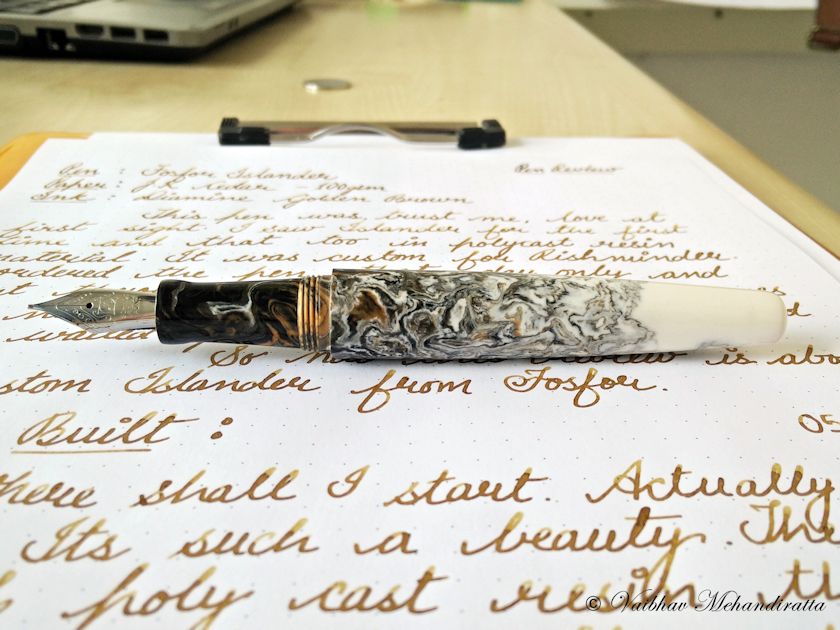 Pen : Fosfor Islander Pen Review
Paper : J.K Cedar - 100gsm
Ink : Diamine Golden Brown
This pen was trust me, love at
first sight. I saw Islander for the first
time and that too in polycast resin
material. It was custom for Rishminder.
ordered the pen only and
So review is abo
stom Islander from Fosfor.
Built : 05
here shall I start. Actually
Its such a beauty. The
poly cast resin th
© Vaibhav Mehandiratta